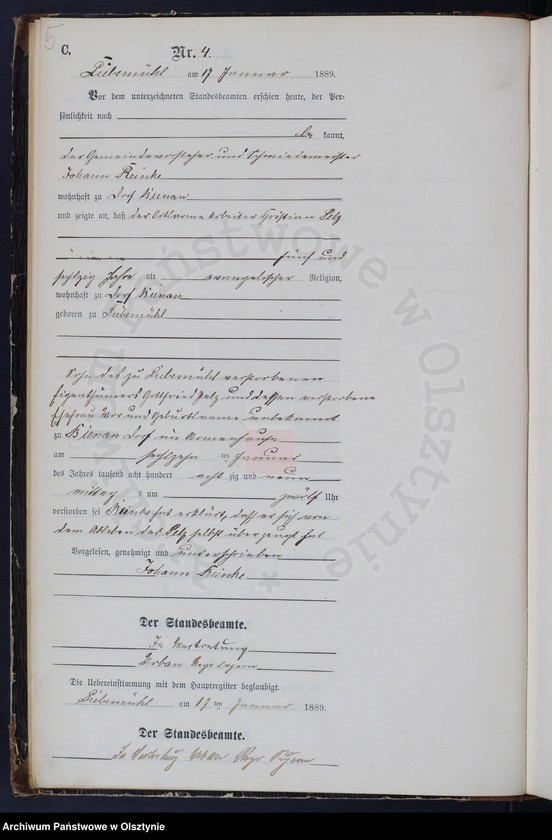 5
C.
Nr. 4.
Liebemühl am 17 Januar 1889.
Vor dem unterzeichneten Standesbeamten erschien heute, der Per-
sönlichkeit nach
be kannt,
der Gemeindevorsteher und Schmiedemeister
Johann Reinke
wohnhaft zu Dorf Bienau
und zeigte an, daß der Ortsarme Arbeiter Christian Pelz
fünf und
sechzig Jahre alt evangelischer Religion,
wohnhaft zu Dorf Bienau
geboren zu Liebemühl
Sohn des zu Liebemühl verstorbenen
Eigenthümers Gottfried Pelz und dessen verstorbene
Ehefrau Vor und Geburtsname unbekannt
zu Bienau Dorf im Armenhause
am sechzehn ten Januar
des Jahres tausend acht hundert acht zig und neun
mittag s um zwölf Uhr
verstorben sei Reinke hat erklärt, daß er sich von
dem Ableben des Pelz selbst überzeugt hat
Vorgelesen, genehmigt und unterschrieben
Johann Reinke
Der Standesbeamte.
In Vertretung
Urban
Die Uebereinstimmung mit dem Hauptregister beglaubigt.
Liebemühl am 17 ten Januar 1889.
Der Standesbeamte.
In Vertretung Urban
Archiwum Państwowe w Olsztynie
Archiwum Państwowe w Olsztynie